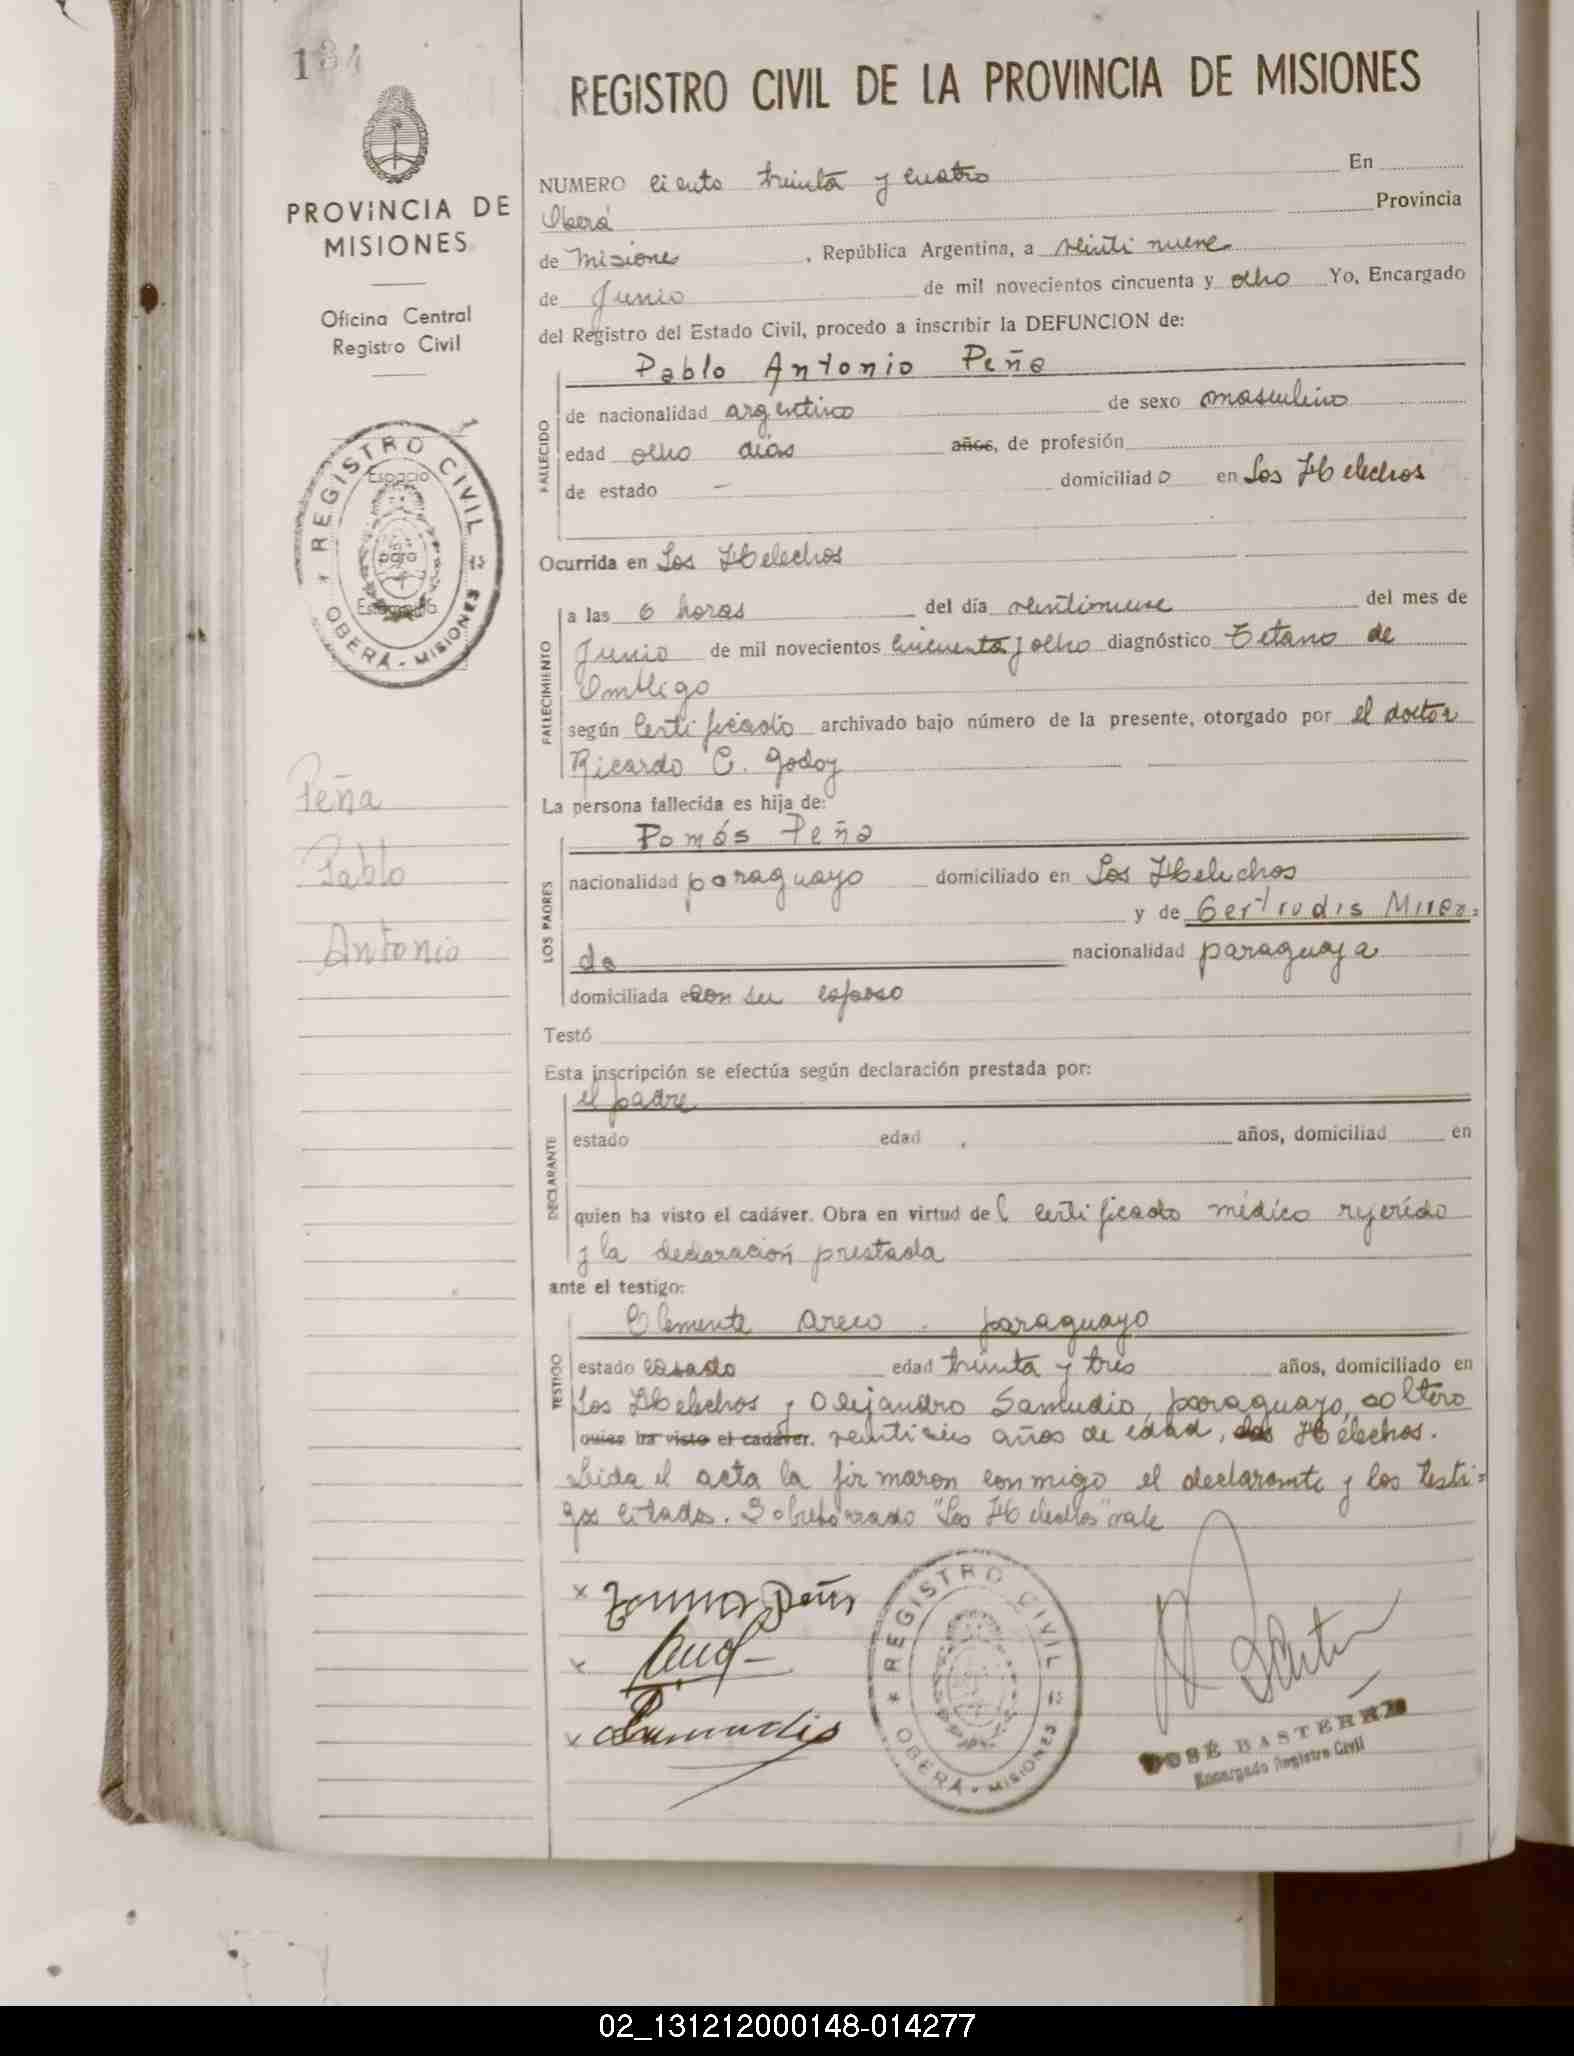 134
PROVINCIA DE
MISIONES
Oficina Central
Registro Civil
REGISTRO CIVIL
Espacio
para
Estampilla
OBERÁ - MISIONES
Peña
Pablo
Antonio
REGISTRO CIVIL DE LA PROVINCIA DE MISIONES
NUMERO ciento treinta y cuatro En
Oberá Provincia
de Misiones, República Argentina, a veinti nueve
de Junio de mil novecientos cincuenta y ocho Yo, Encargado
del Registro del Estado Civil, procedo a inscribir la DEFUNCION de:
FALLECIDO
Pablo Antonio Peña
de nacionalidad argentino de sexo masculino
edad ocho días años, de profesión
de estado — domiciliado en Los Helechos
Ocurrida en Los Helechos
FALLECIMIENTO
a las 6 horas del día veintinueve del mes de
Junio de mil novecientos cincuenta y ocho diagnóstico Tetano de
Ombligo
según certificado archivado bajo número de la presente, otorgado por el doctor
Ricardo C. Godoy
La persona fallecida es hija de:
LOS PADRES
Tomás Peña
nacionalidad paraguayo domiciliado en Los Helechos
y de Gertrudis Miran=
da nacionalidad paraguaya
domiciliada con su esposo
Testó
Esta inscripción se efectúa según declaración prestada por:
DECLARANTE
el padre
estado edad años, domiciliad en
quien ha visto el cadáver. Obra en virtud del certificado médico referido
y la declaración prestada
ante el testigo:
TESTIGO
Clemente Areco - paraguayo
estado casado edad treinta y tres años, domiciliado en
Los Helechos y Alejandro Samudio, paraguayo, soltero
quien ha visto el cadáver. veintiseis años de edad, Los Helechos.
Leida el acta la firmaron conmigo el declarante y los testi=
gos citados. Sobreborrado "Los Helechos" vale
x Tomas Peña
x
x Samudio
REGISTRO CIVIL
OBERÁ - MISIONES
JOSÉ BASTERRA
Encargado Registro Civil
02_131212000148-014277